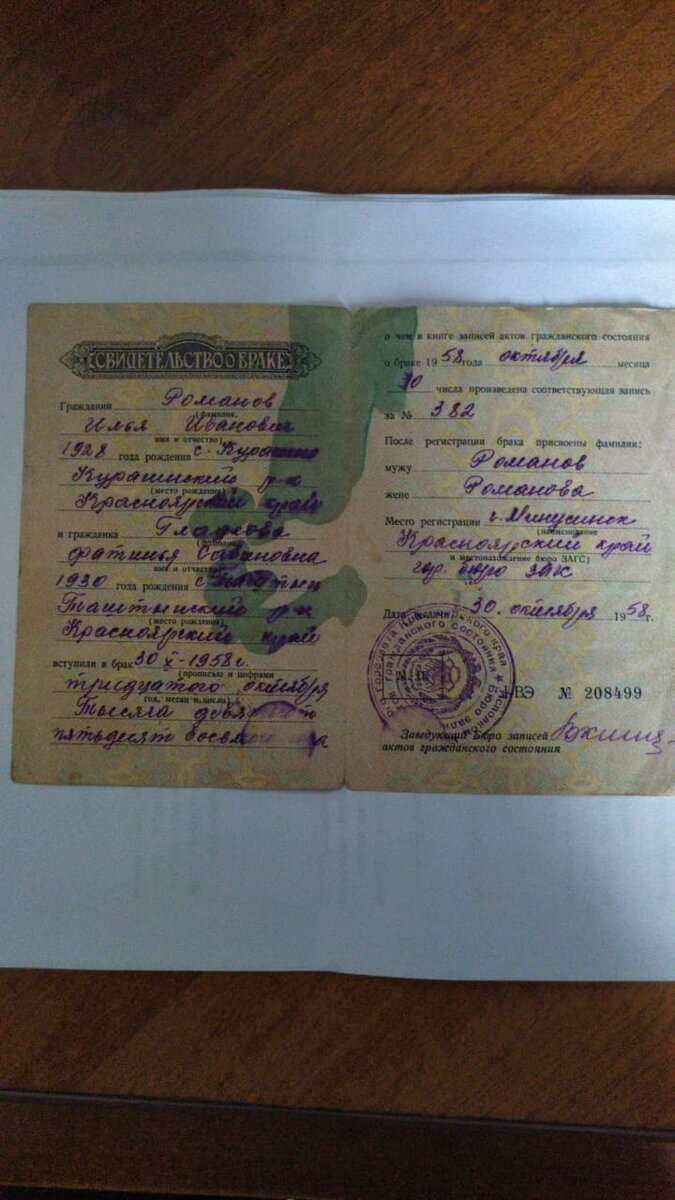 СВИДЕТЕЛЬСТВО О БРАКЕ
Гражданин Романов
(фамилия,
Илья Иванович
имя и отчество)
1928 года рождения с.
р-н
(место рождения)
Красноярский край
и гражданка
(фамилия,
имя и отчество)
1930 года рождения с.
Таштыпский р-н
(место рождения)
Красноярский край
вступили в брак 30 X-1958 г.
(прописью и цифрами
тридцатого октября
год, месяц и число)
Тысяча
пятьдесят
о чем в книге записей актов гражданского состояния
о браке 1958 года октября месяца
30 числа произведена соответствующая запись
за № 382
После регистрации брака присвоены фамилии:
мужу Романов
жене Романова
Место регистрации г. Минусинск
(наименование
Красноярский край
и местонахождение бюро ЗАГС)
гор. бюро ЗАГС
Дата выдачи 30. октября 1958 г.
ВЭ № 208499
Заведующий Бюро записей
актов гражданского состояния